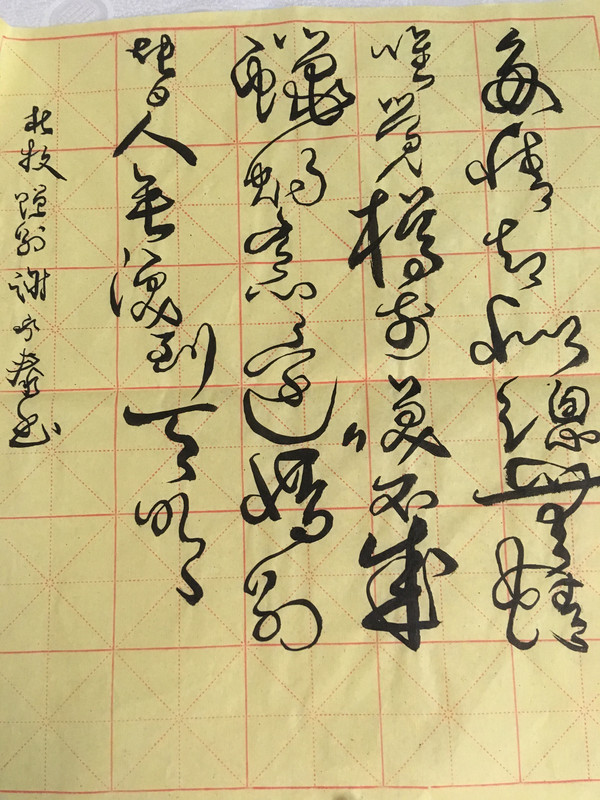 多情却似總無情
唯觉樽前笑不成
蠟燭有心還惜别
替人垂淚到天明
杜牧 赠别 谢永 书